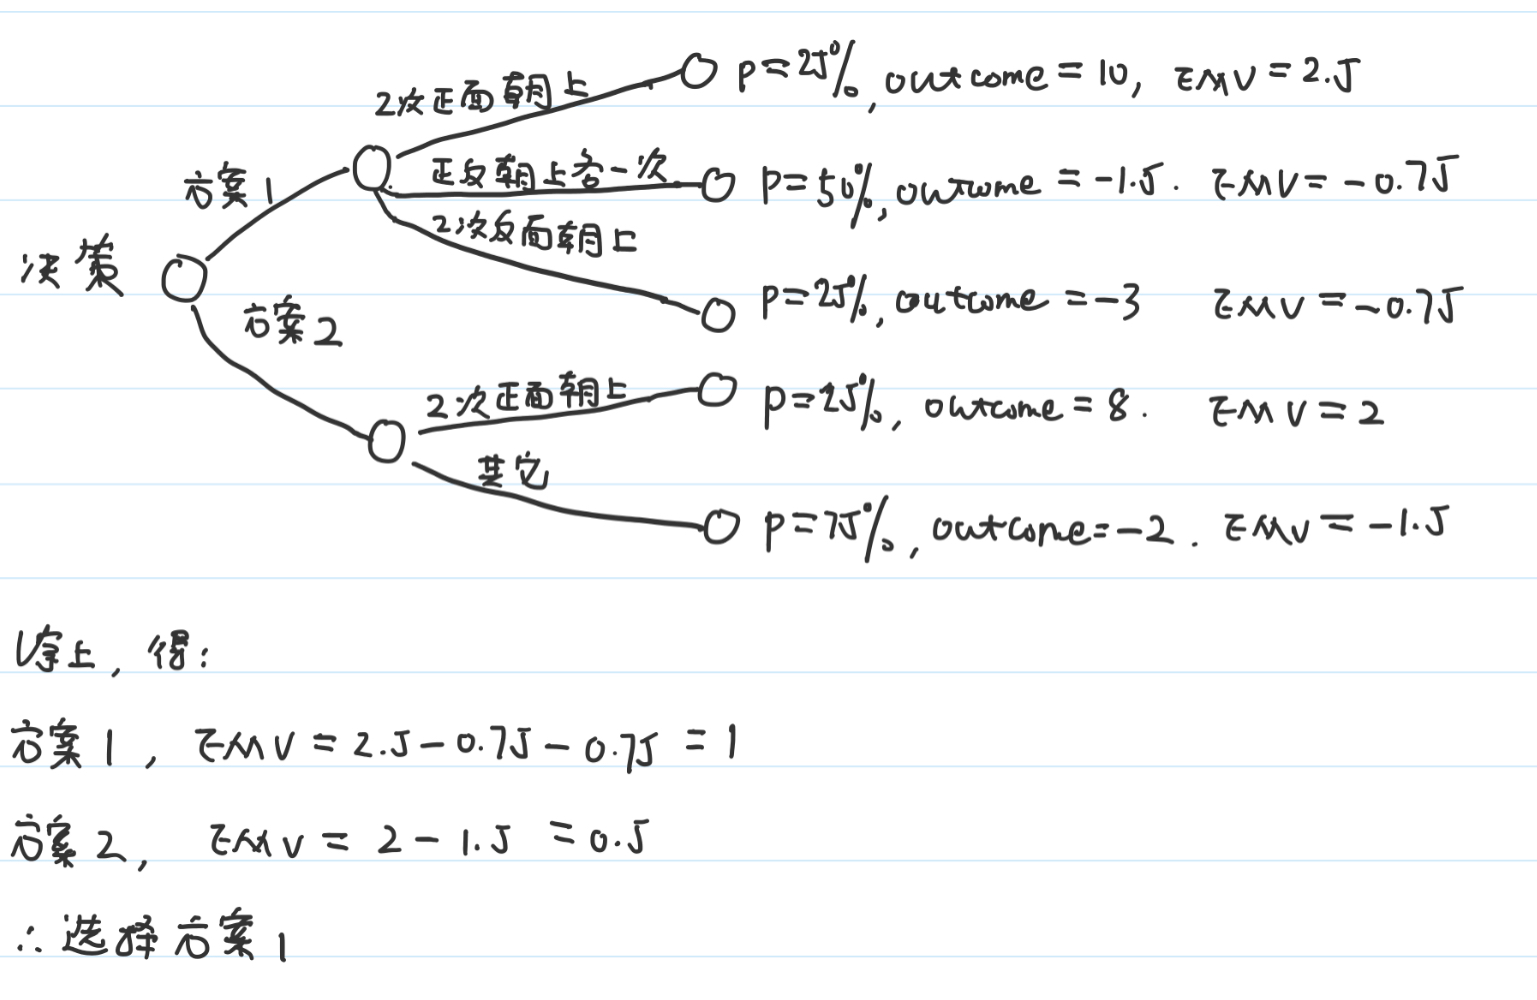 2次正面朝上
p=25%, outcome = 10, EMV = 2.5
方案1
正反朝上各一次
p=50%, outcome = -1.5. EMV = -0.75
2次反面朝上
决策
p=25%, outcome = -3 EMV = -0.75
方案2
2次正面朝上
p=25%, outcome = 8. EMV = 2
其它
p=75%, outcome=-2. EMV = -1.5
综上, 得:
方案1, EMV = 2.5-0.75-0.75 = 1
方案2, EMV = 2-1.5 = 0.5
∴选择方案1